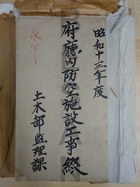 昭和十三年度
府廳内防空施設工事綴
土木部監理課